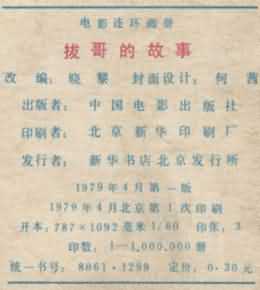 电影连环画册
拔哥的故事
改编：晓黎 封面设计：何茜
出版者：中国电影出版社
印刷者：北京新华印刷厂
发行者：新华书店北京发行所
1979年4月第一版
1979年4月北京第1次印刷
开本：787×1092毫米1/60 印张：3
印数：1—1,000,000册
统一书号：8061·1299 定价：0.30元